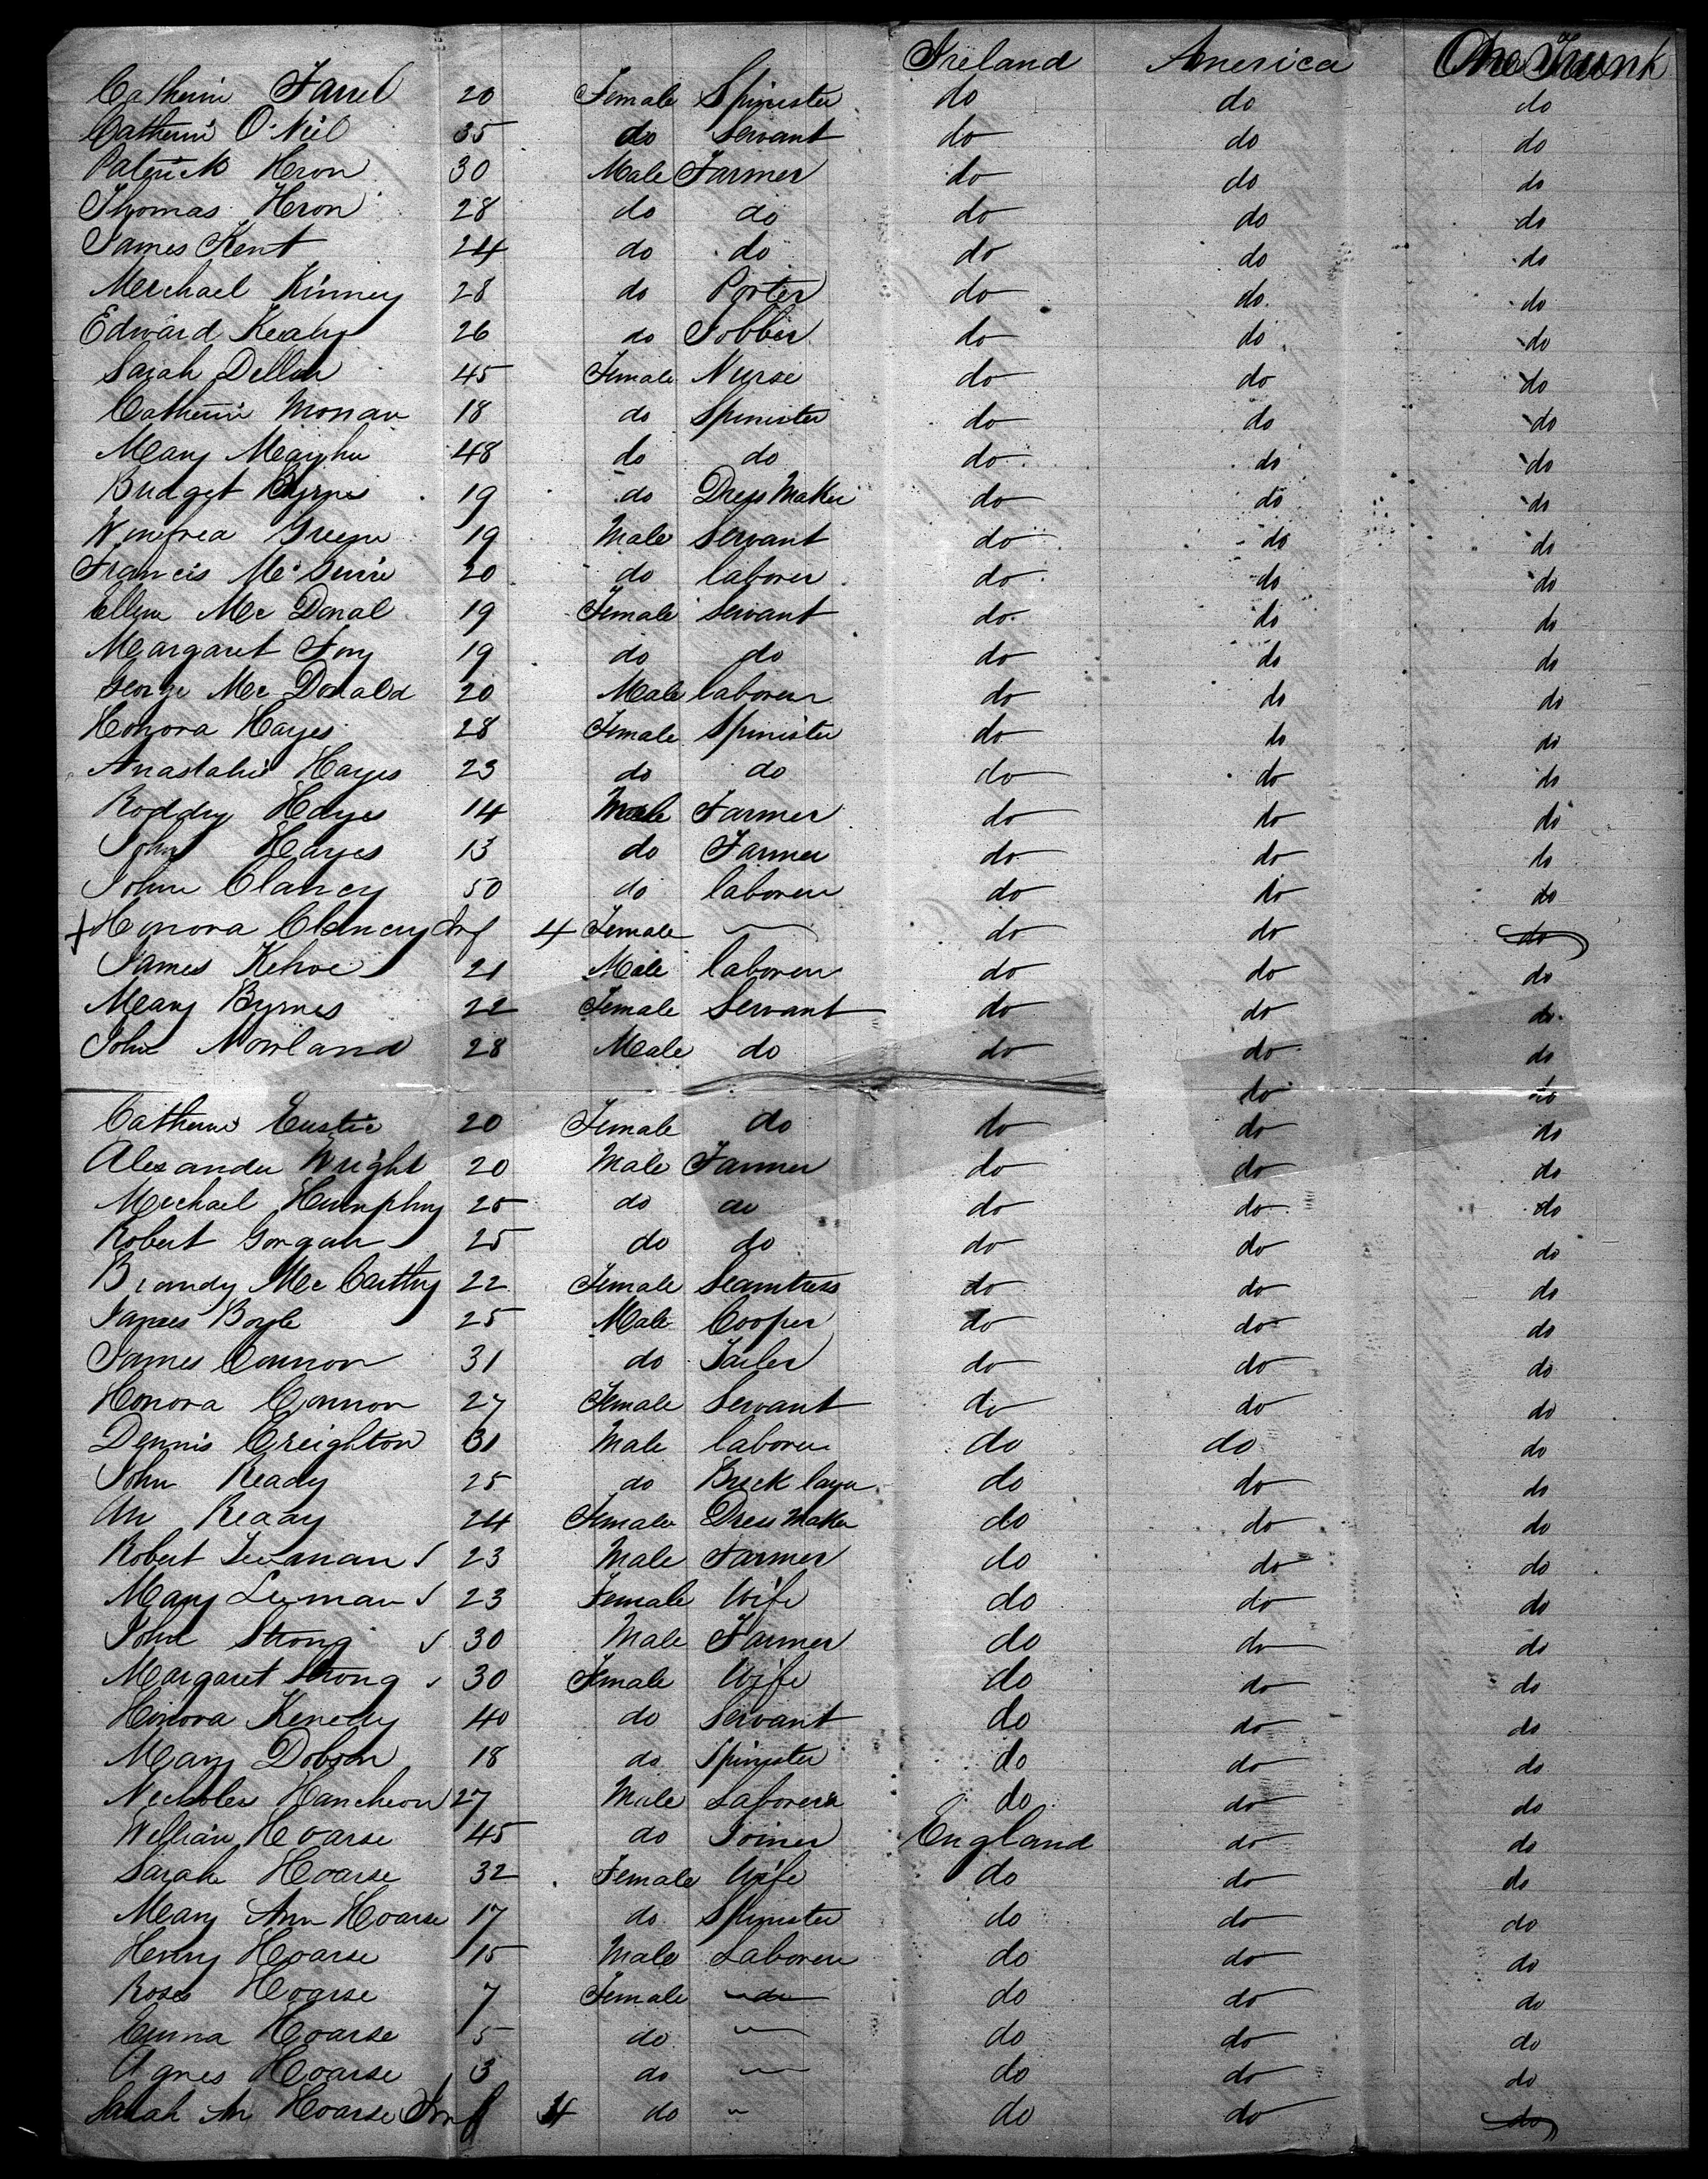 Ireland America One Trunk
Catherine Farrel 20 Female Spinister do do do
Catherine O'Neil 35 do Servant do do do
Patrick Heron 30 Male Farmer do do do
Thomas Heron 28 do do do do do
James Kent 24 do do do do do
Michael Kinney 28 do Porter do do do
Edward Kealy 26 do Jobber do do do
Sarah Dillon 45 Female Nurse do do do
Catherine 18 do Spinister do do do
Mary 48 do do do do do
Bridget Byrnes 19 do Dress Maker do do do
Greene 19 Male Servant do do do
Francis McGuire 20 do laborer do do do
Ellen Mc Donal 19 Female Servant do do do
Margaret Foy 19 do do do do do
George Mc Donald 20 Male laborer do do do
Honora Hayes 28 Female Spinister do do do
Anastatia Hayes 23 do do do do do
Roddy Hayes 14 Male Farmer do do do
John Hayes 13 do Farmer do do do
John Clancy 50 do laborer do do do
+ Honora Clancy Inf 4 Female do do do
James Kehoe 21 Male laborer do do do
Mary Byrnes 22 Female Servant do do do
John Nowland 28 Male do do do do
do do
Catherine Eustic 20 Female do do do do
Alexander Wright 20 Male Farmer do do do
Michael Humphry 25 do do do do do
Robert Gorgan 25 do do do do do
Mc Carthy 22 Female Seamtress do do do
James Boyle 25 Male Cooper do do do
James Connor 31 do Tailer do do do
Honora Connor 27 Female Servant do do do
Dennis Creighton 31 Male laborer do do do
John Ready 25 do Brick layer do do do
An Ready 24 Female Dress Maker do do do
Robert 23 Male Farmer do do do
Mary 23 Female Wife do do do
John Strong 30 Male Farmer do do do
Margaret Strong 30 Female Wife do do do
Honora Kenedy 40 do Servant do do do
Mary Dobson 18 do Spinister do do do
Nicholes Hancheon 27 Male Laborer do do do
William Hoarse 45 do Joiner England do do
Sarah Hoarse 32 Female Wife do do do
Mary Ann Hoarse 17 do Spinister do do do
Henry Hoarse 15 Male Laborer do do do
Rose Hoarse 7 Female do do do do
Emma Hoarse 5 do do do do
Agnes Hoarse 3 do do do do
Sarah An Hoarse Inf 4 do do do do